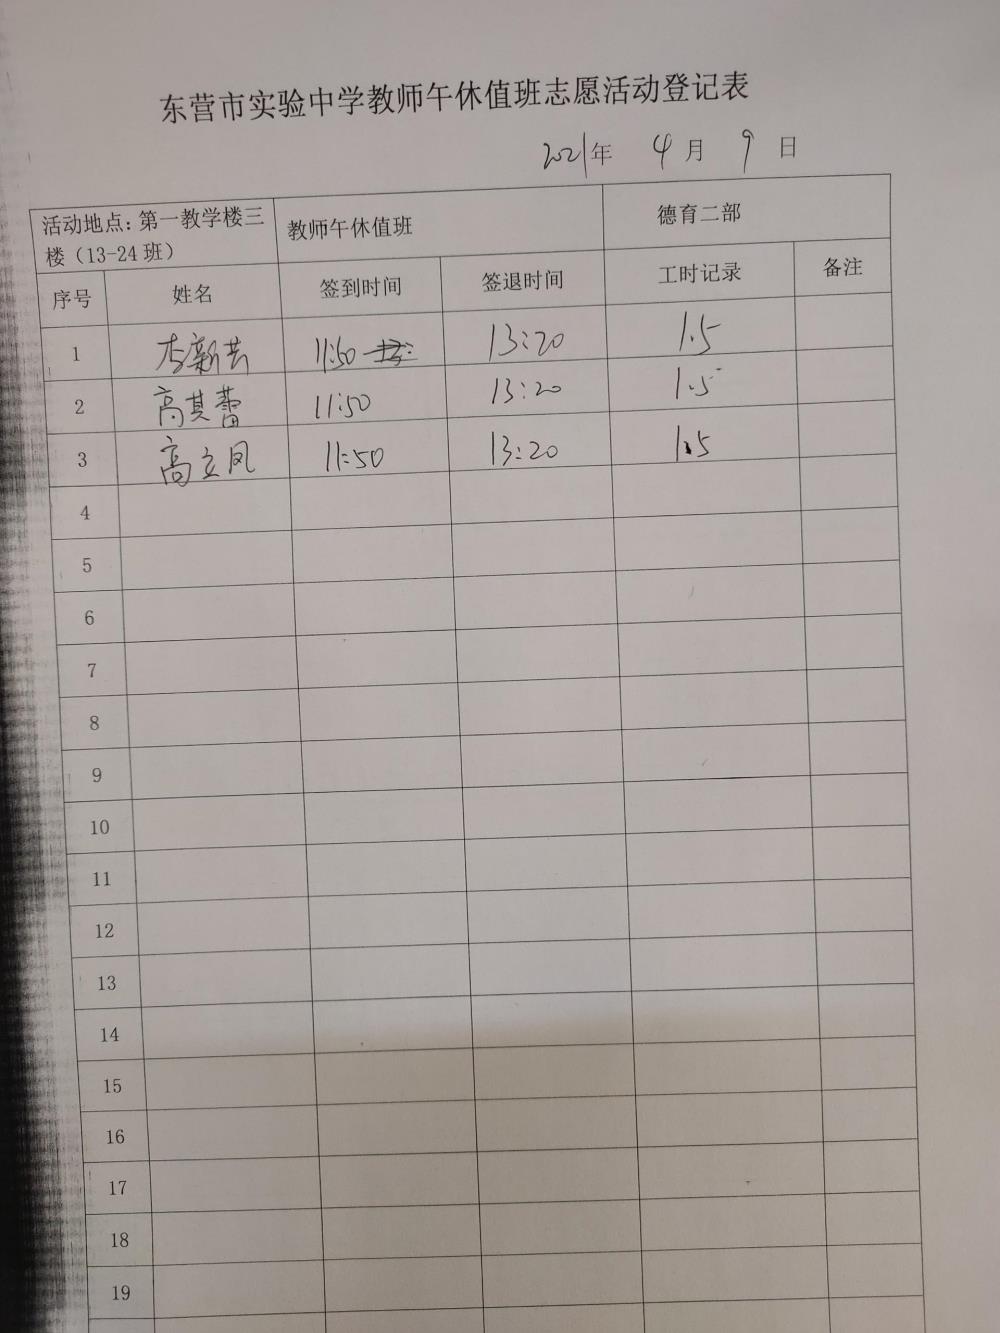 东营市实验中学教师午休值班志愿活动登记表
2021年 4月 9日
活动地点:第一教学楼三 教师午休值班 德育二部
楼(13-24班)
序号 姓名 签到时间 签退时间 工时记录 备注
1 李新芸 11:50 13:20 1.5
2 高其蕾 11:50 13:20 1.5
3 高立凤 11:50 13:20 1.5
4
5
6
7
8
9
10
11
12
13
14
15
16
17
18
19